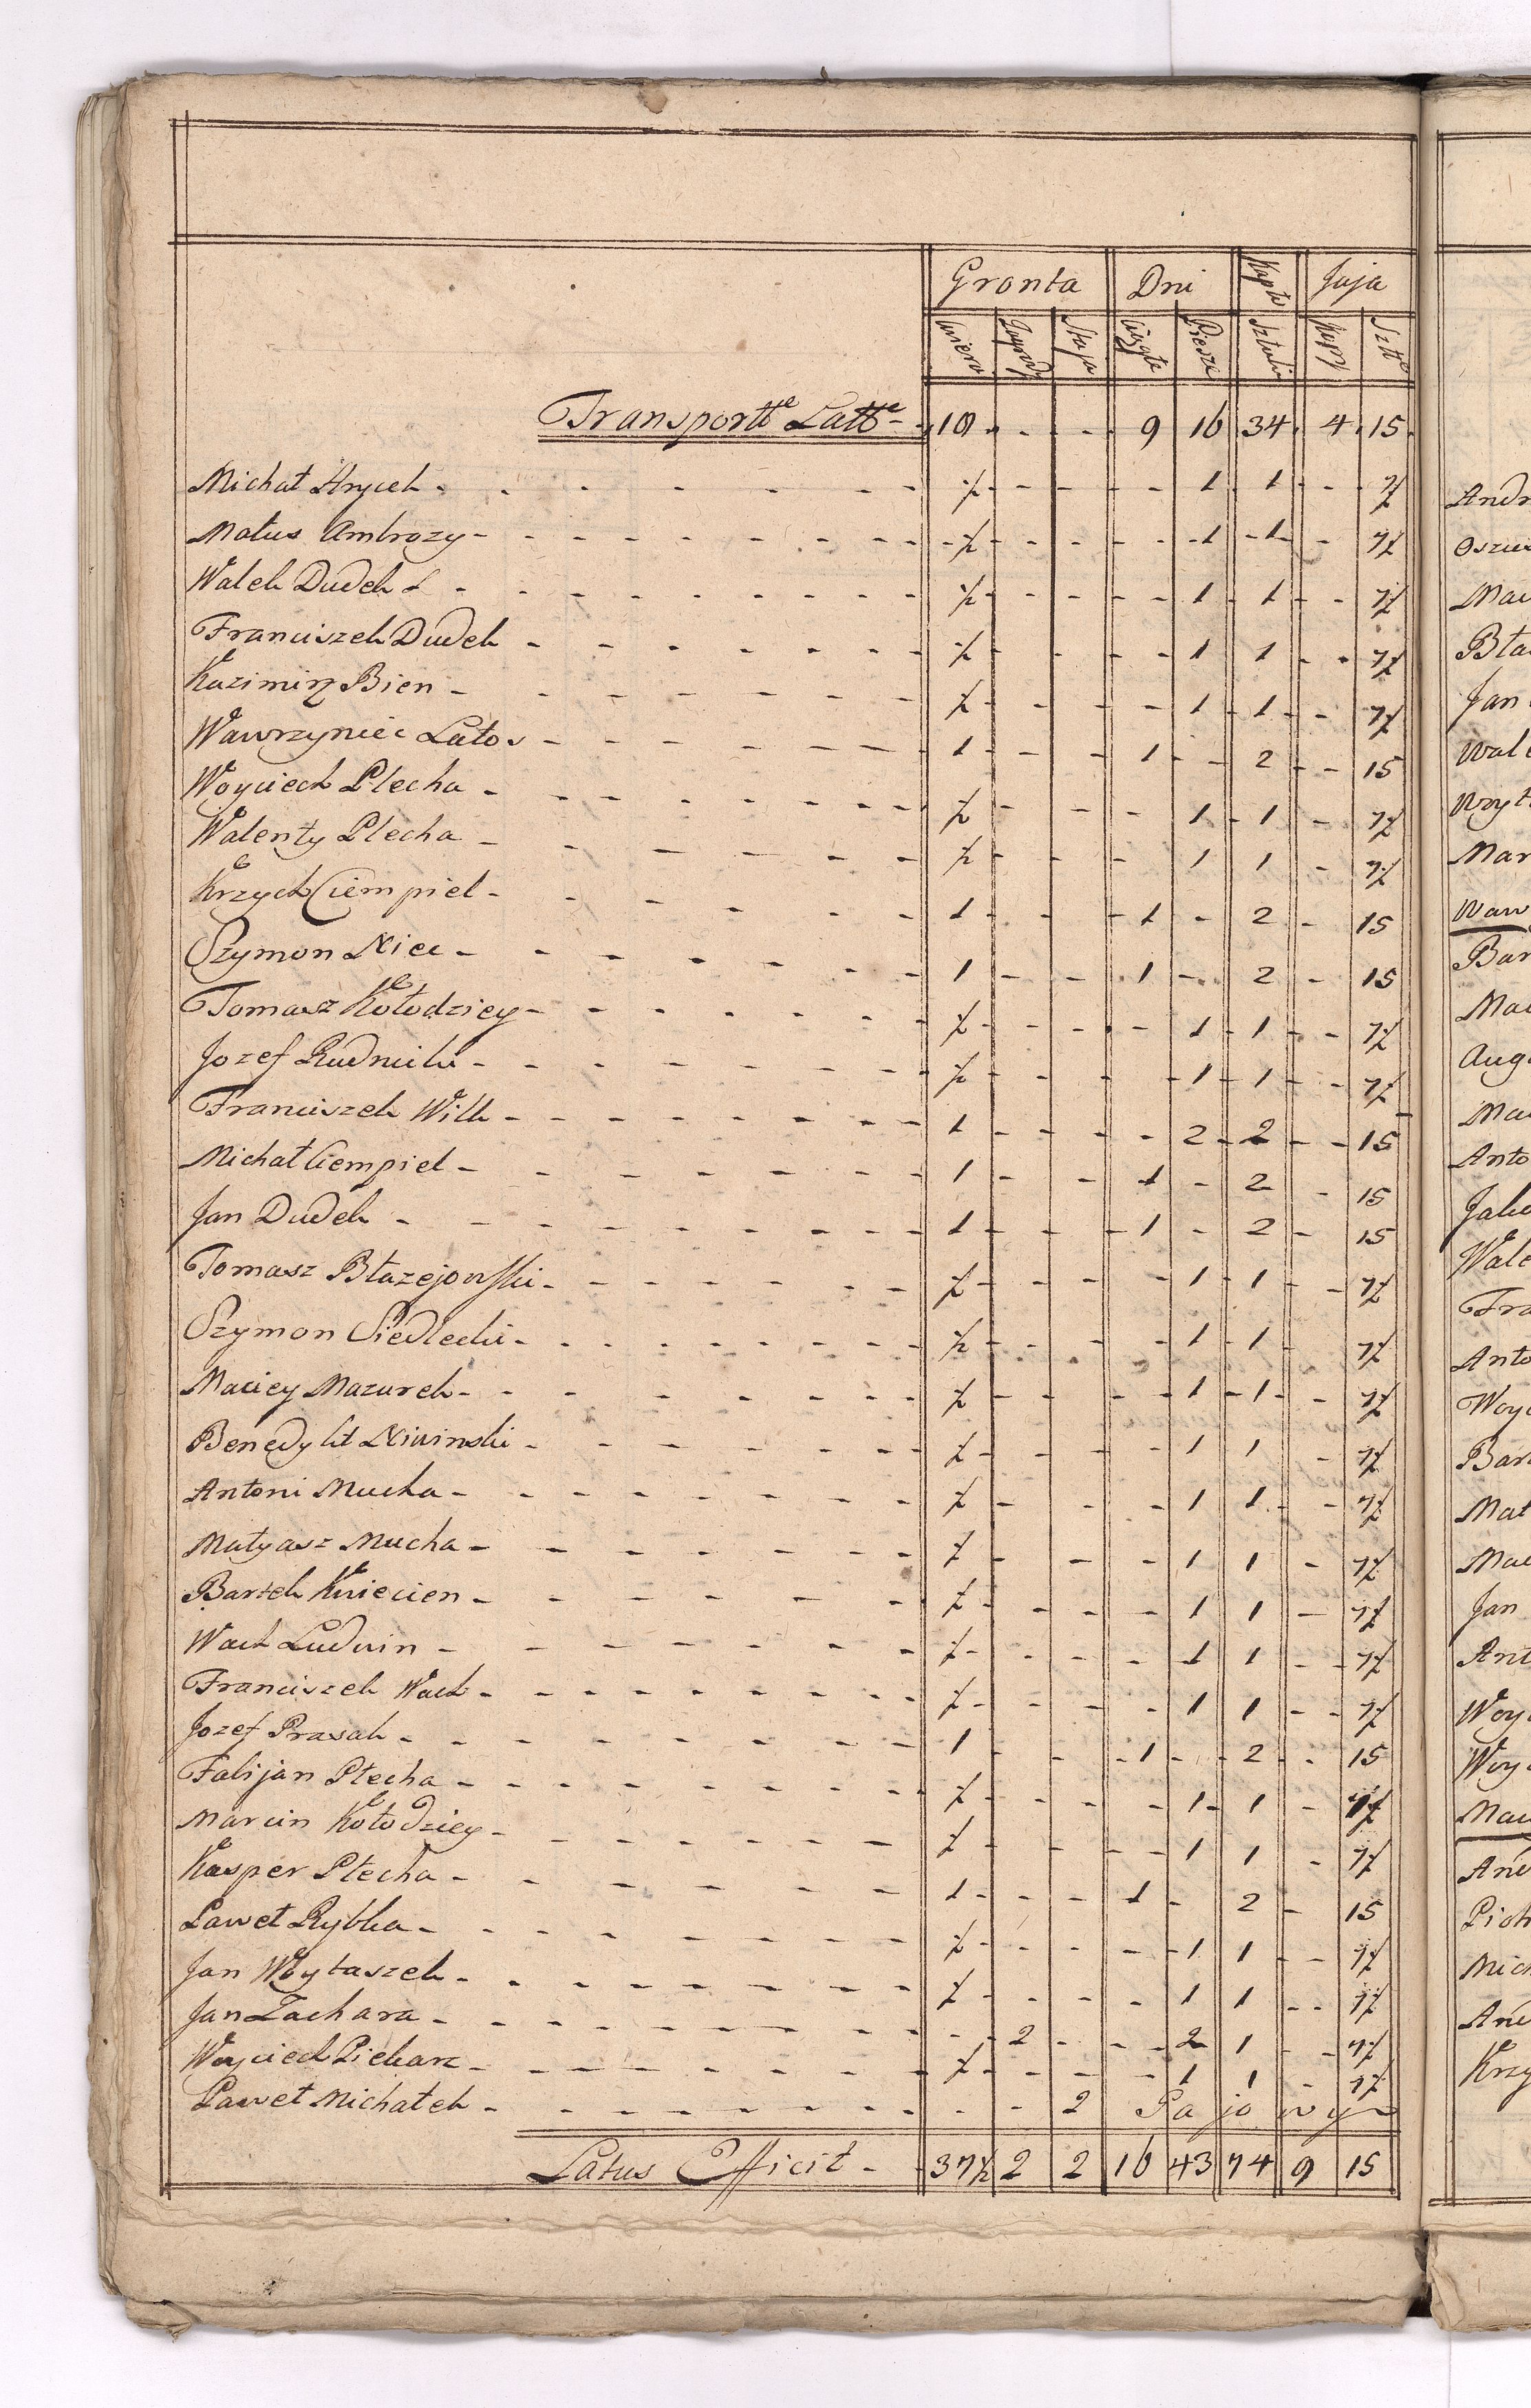 Gronta Dni Kapło Jaja
Cwierci Zagrody Staja Ciągłe Piesze Sztuki Kopy Sztu
Transportte Latte 18 9 16 34 4 15
Michał Hrycek ½ 1 1 7½
Matus Ambrozy ½ 1 1 7½
Walek Dudek ½ 1 1 7½
Franciszek Dudek ½ 1 1 7½
Kazimirz Bien ½ 1 1 7½
Wawrzyniec Latos 1 1 2 15
Woyciech Plecha ½ 1 1 7½
Walenty Plecha ½ 1 1 7½
Krzych Ciempiel 1 1 2 15
Szymon Niec 1 1 2 15
Tomasz Kołodziey ½ 1 1 7½
Jozef Rudnicki ½ 1 1 7½
Franciszek Wilk 1 2 2 15
Michał Ciempiel 1 1 2 15
Jan Dudek 1 1 2 15
Tomasz Błazejowski ½ 1 1 7½
Szymon Siedlecki ½ 1 1 7½
Maciey Mazurek ½ 1 1 7½
Benedykt Niwinski ½ 1 1 7½
Antoni Mucha ½ 1 1 7½
Matyasz Mucha ½ 1 1 7½
Bartek Kwiecien ½ 1 1 7½
Wach Ludwin ½ 1 1 7½
Franciszek Wach ½ 1 1 7½
Jozef Prasak 1 1 2 15
Fabijan Plecha ½ 1 1 7½
Marcin Kołodziey ½ 1 1 7½
Kasper Plecha 1 1 2 15
Paweł Rybka ½ 1 1 7½
Jan Woytaszek ½ 1 1 7½
Jan Zachara 2 2 1 7½
Woyciech Piekarz ½ 1 1 7½
Paweł Michałek 2 Pajowy
Latus Efficit 37½ 2 2 16 43 74 9 15